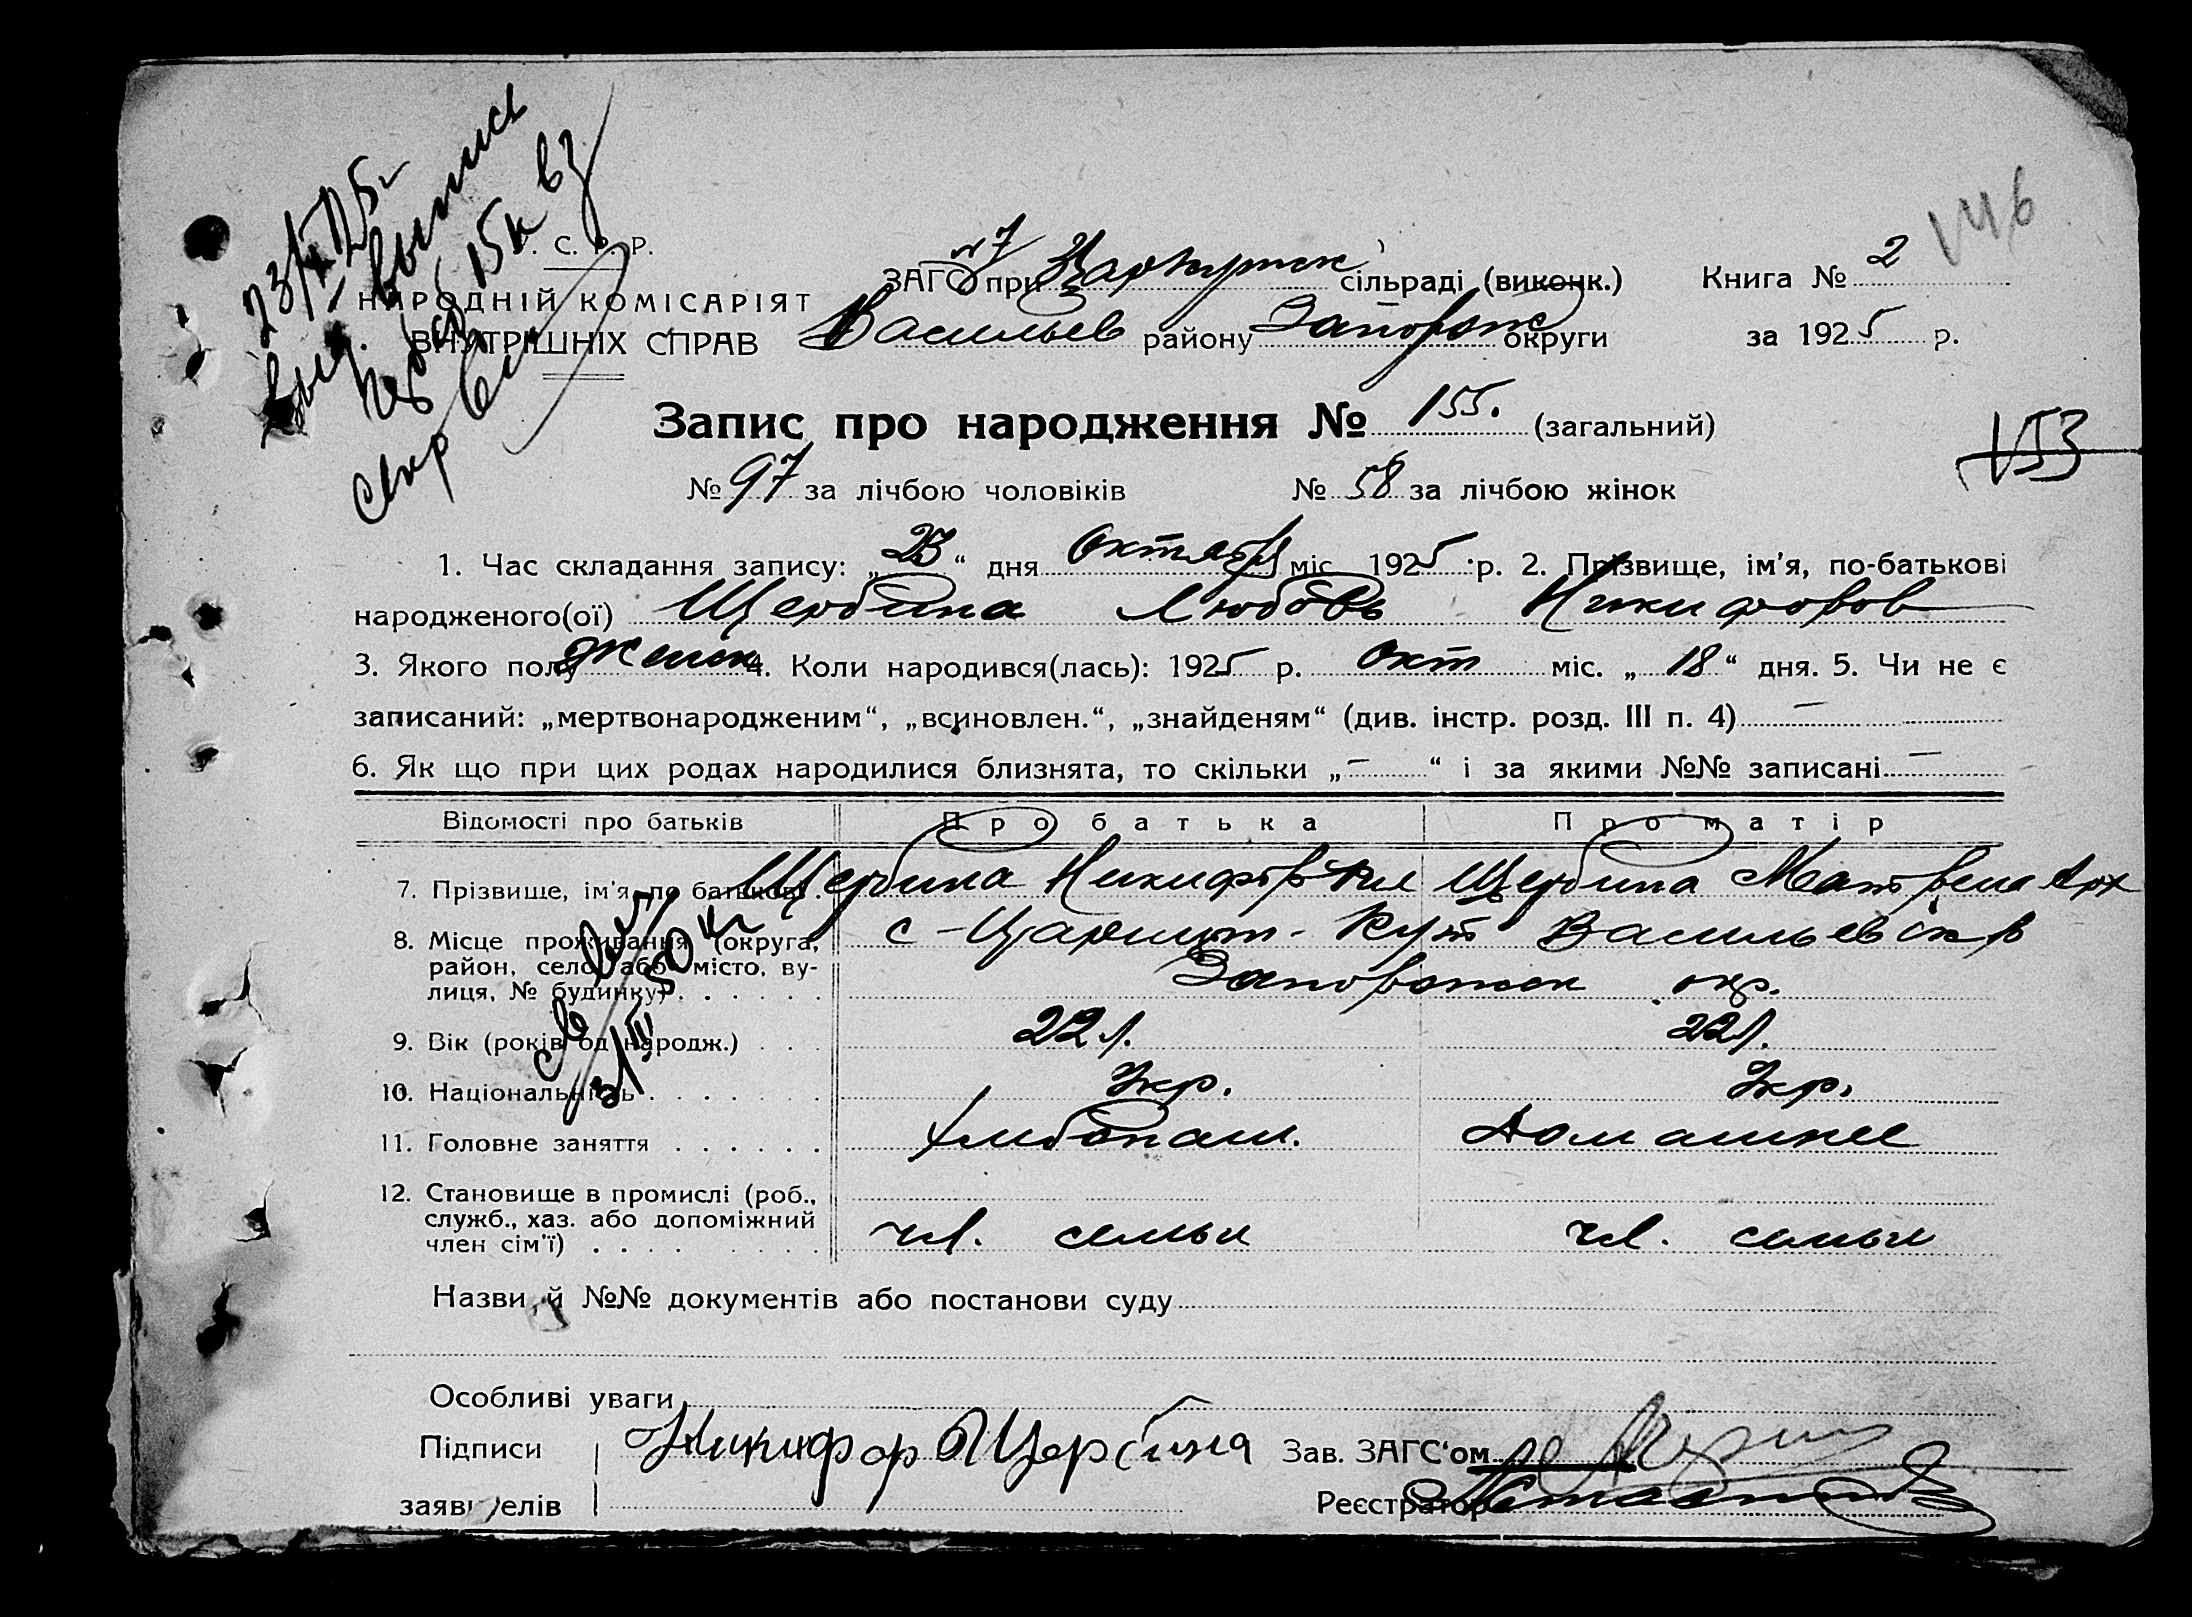 23/X 25г
выд. выпись
15к вз
секр
146
С. Р. Р.
НАРОДНІЙ КОМІСАРІЯТ
ВНУТРІШНІХ СПРАВ
ЗАГС №7 при Царкутск сільраді (виконк.) Книга № 2
Васильев району Запорож округи за 1925 р.
Запис про народження № 155. (загальний)
153
№ 97 за лічбою чоловіків № 58 за лічбою жінок
1. Час складання запису: „23“ дня Октября міс. 1925 р. 2. Прізвище, ім'я, по-батькові
народженого(ої) Щербина Любовь Никифоров
3. Якого полу женск 4. Коли народився(лась): 1925 р. окт міс. „18“ дня. 5. Чи не є
записаний: „мертвонародженим“, „всиновлен.“, „знайденям“ (див. інстр. розд. III п. 4) —
6. Як що при цих родах народилися близнята, то скільки „—“ і за якими №№ записані —
Відомості про батьків Про батька Про матір
7. Прізвище, ім'я, по батькові . Щербина Никифор Щербина Матрена Арх
8. Місце проживання (округа, с-Царицын-Кут Васильевск р
район, село або місто, ву-
лиця, № будинку) . . . . . . Запорожск окр.
50 к
9. Вік (років од народж.) . . . 22 л. 22 л.
3/III
10. Національність . . . . . . . Укр. Укр.
11. Головне заняття . . . . . . Хлебопаш. Домашнее
12. Становище в промислі (роб.,
служб., хаз. або допоміжний
член сім'ї) . . . . . . . . чл. семьи чл. семьи
Назви й №№ документів або постанови суду
Особливі уваги
Підписи Никифор Щербина Зав. ЗАГС'ом
заявителів Реєстратор